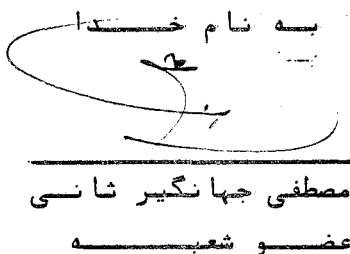 به نام خدا
مصطفی جهانگیر ثانی
عضو شعبه